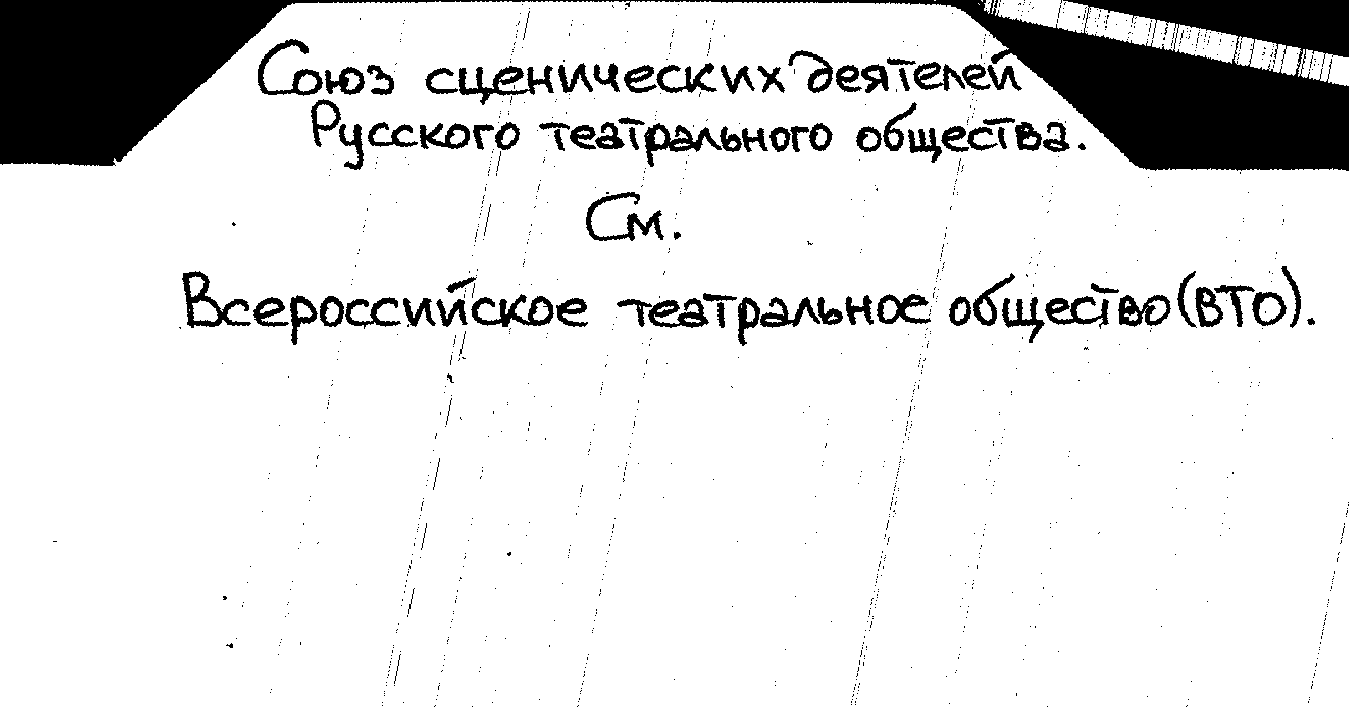 Союз сценических деятелей
Русского театрального общества.
См.
Всероссийское театральное общество (ВТО).